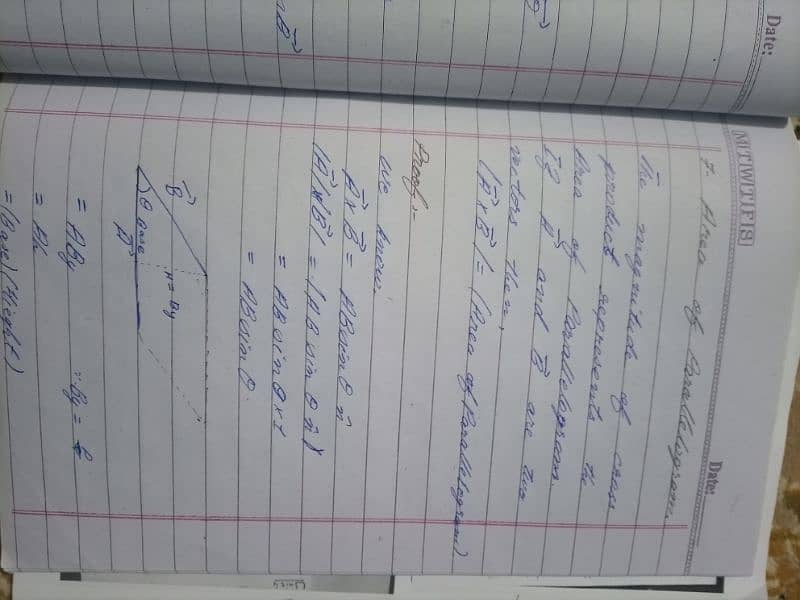 Date:
MTWTFS
Date:
7. Area of Parallelogram.
The magnitude of cross
product represents the
Area of Parallelogram.
If A⃗ and B⃗ are two
vectors then,
|A⃗ x B⃗| = (Area of Parallelogram)
Proof:
we know.
A⃗ x B⃗ = ABsinθ n̂
|A⃗ x B⃗| = |AB sinθ n̂|
= AB sinθ x 1
= ABsinθ.
B⃗
H = By
θ Base
A⃗
= ABy ∵ By = h
= Ah
= (Base) (Hieght)